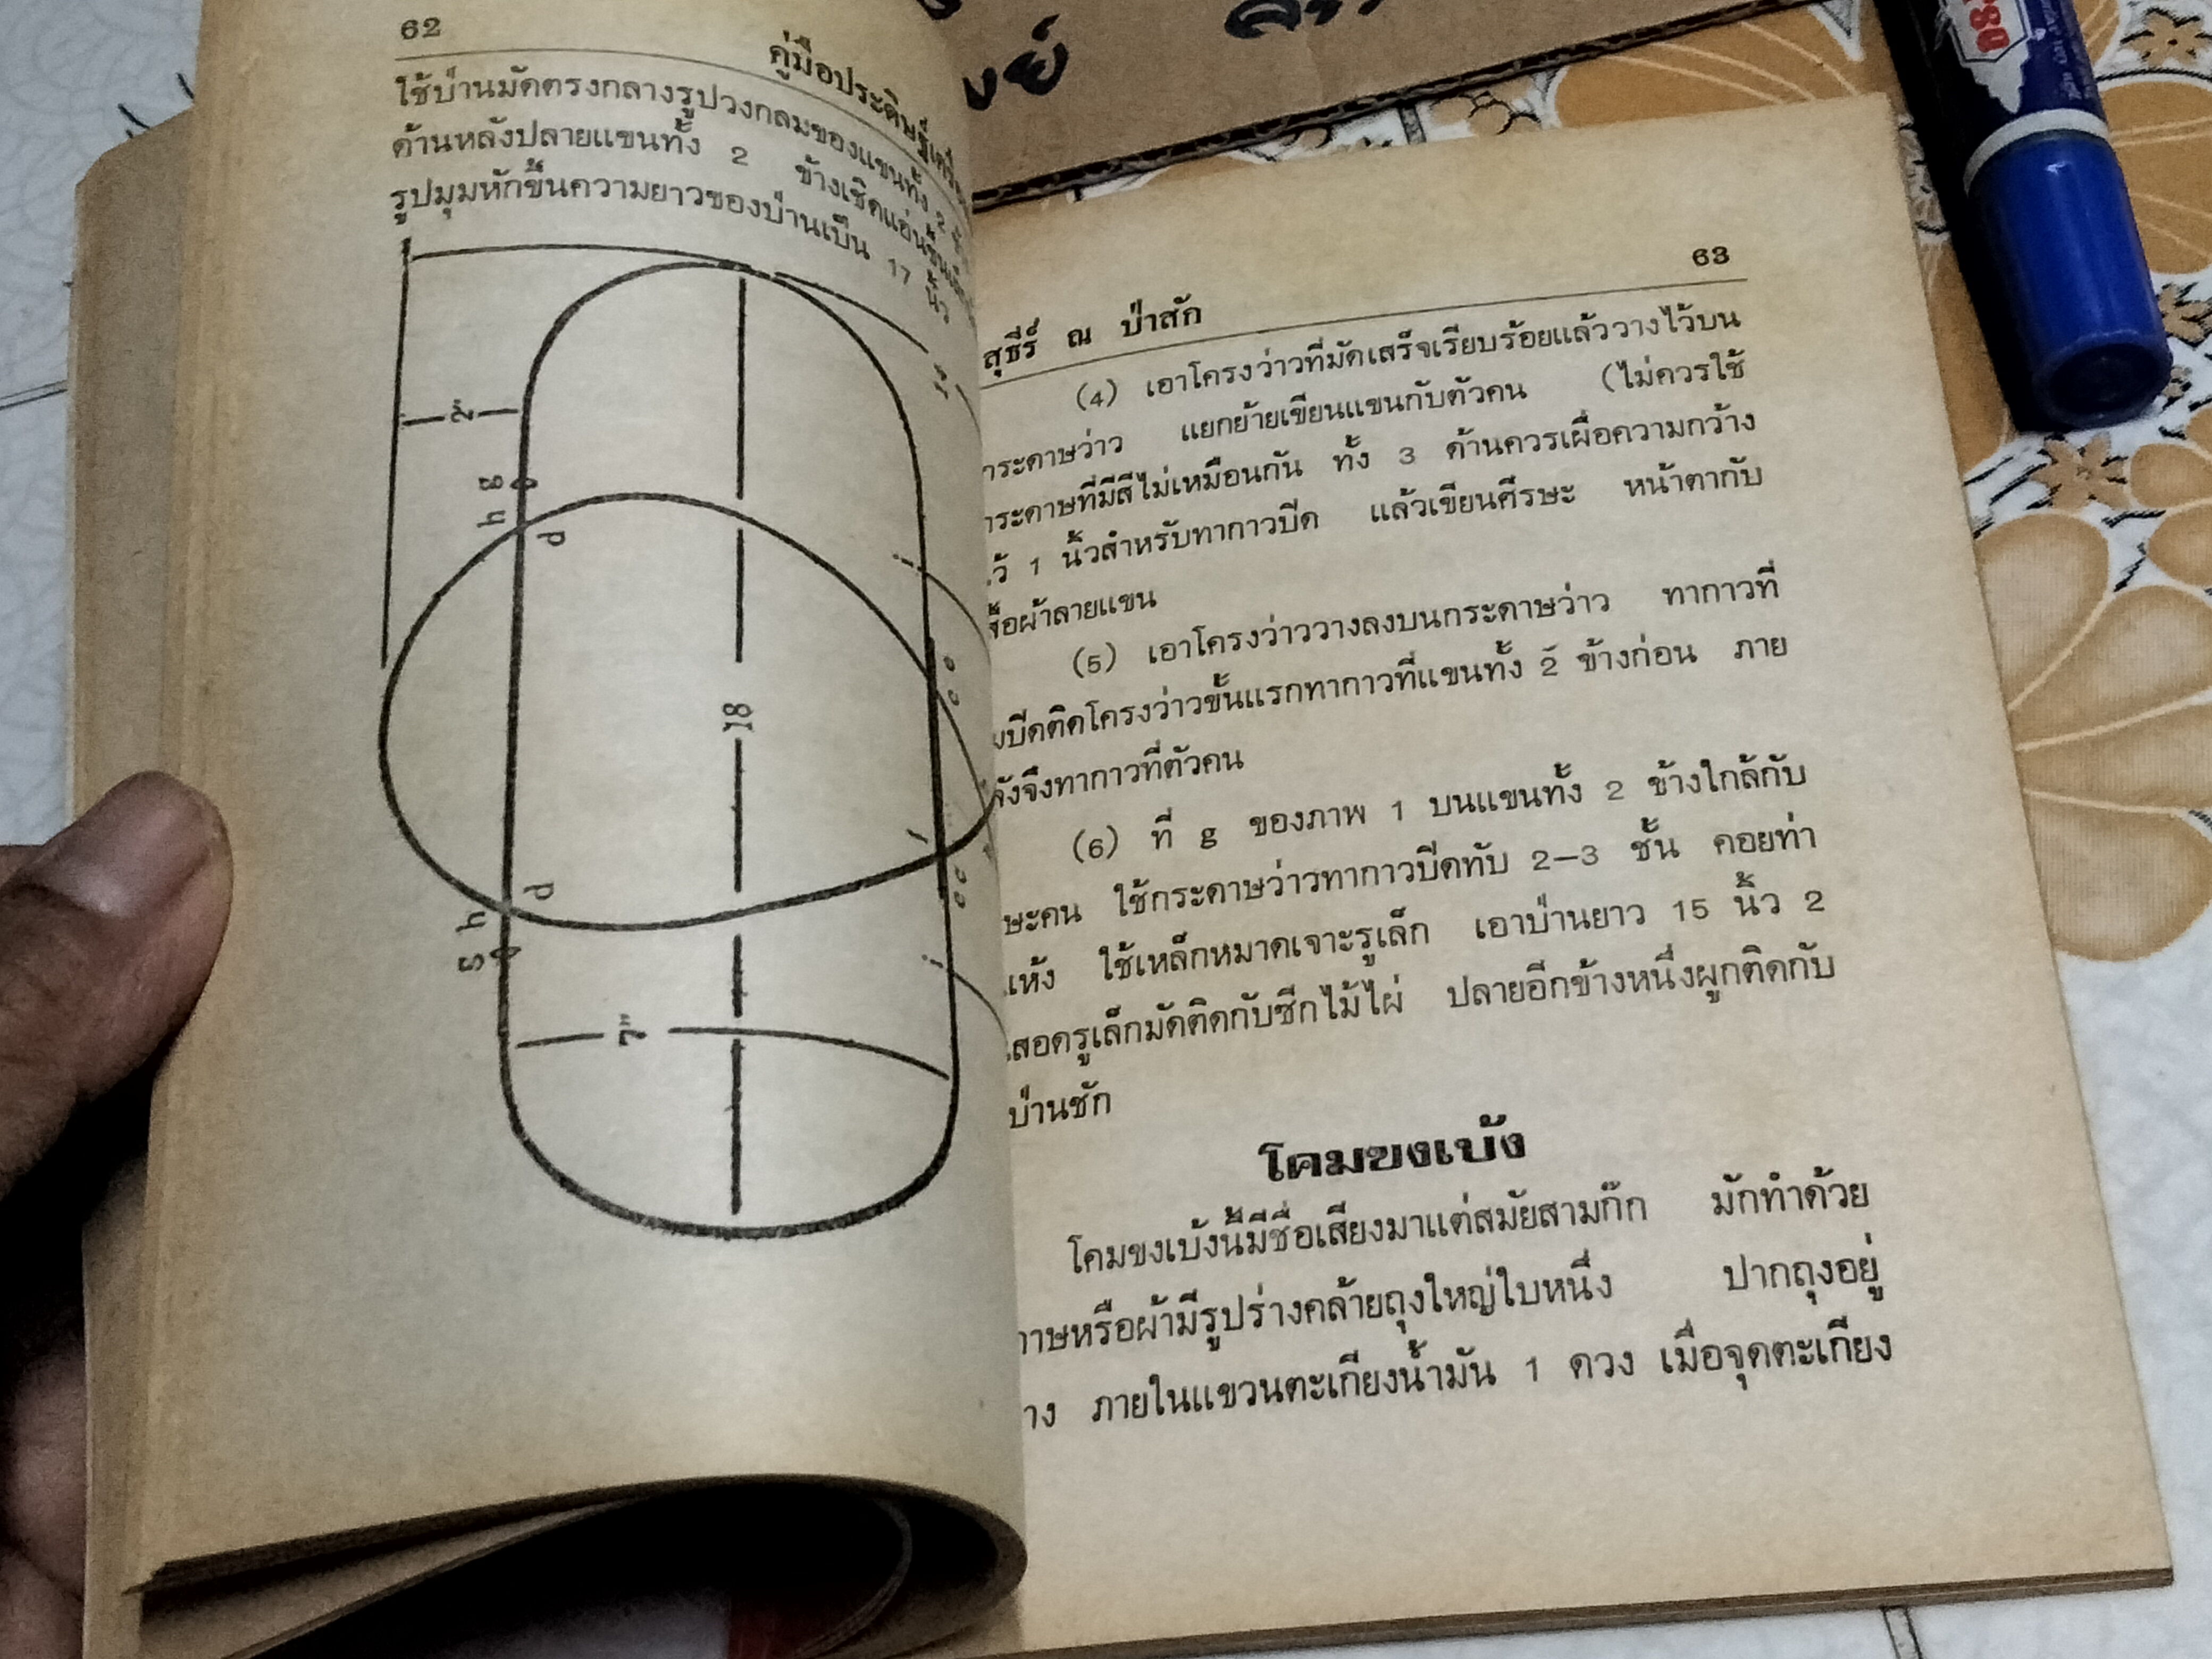 62
คู่มือประดิษฐ์
ใช้ป่านมัดตรงกลางรูปวงกลมของแขนทั้ง 2
ด้านหลังปลายแขนทั้ง 2 ข้างเชิดแอ่นขึ้น
รูปมุมหักขึ้นความยาวของป่านเป็น 17 นิ้ว
2"
g
h
d
18
d
h
g
7"
i
i
63
สุธีร์ ณ ป่าสัก
(4) เอาโครงว่าวที่มัดเสร็จเรียบร้อยแล้ววางไว้บน
กระดาษว่าว แยกย้ายเขียนแขนกับตัวคน (ไม่ควรใช้
กระดาษที่มีสีไม่เหมือนกัน ทั้ง 3 ด้านควรเผื่อความกว้าง
ไว้ 1 นิ้วสำหรับทากาวปิด แล้วเขียนศีรษะ หน้าตากับ
เสื้อผ้าลายแขน
(5) เอาโครงว่าววางลงบนกระดาษว่าว ทากาวที่
ปีดติดโครงว่าวขั้นแรกทากาวที่แขนทั้ง 2 ข้างก่อน ภาย
หลังจึงทากาวที่ตัวคน
(6) ที่ g ของภาพ 1 บนแขนทั้ง 2 ข้างใกล้กับ
ษะคน ใช้กระดาษว่าวทากาวปีดทับ 2–3 ชั้น คอยท่า
แห้ง ใช้เหล็กหมาดเจาะรูเล็ก เอาป่านยาว 15 นิ้ว 2
สอดรูเล็กมัดติดกับซีกไม้ไผ่ ปลายอีกข้างหนึ่งผูกติดกับ
ป่านชัก
โคมขงเบ้ง
โคมขงเบ้งนี้มีชื่อเสียงมาแต่สมัยสามก๊ก มักทำด้วย
าษหรือผ้ามีรูปร่างคล้ายถุงใหญ่ใบหนึ่ง ปากถุงอยู่
าง ภายในแขวนตะเกียงน้ำมัน 1 ดวง เมื่อจุดตะเกียง